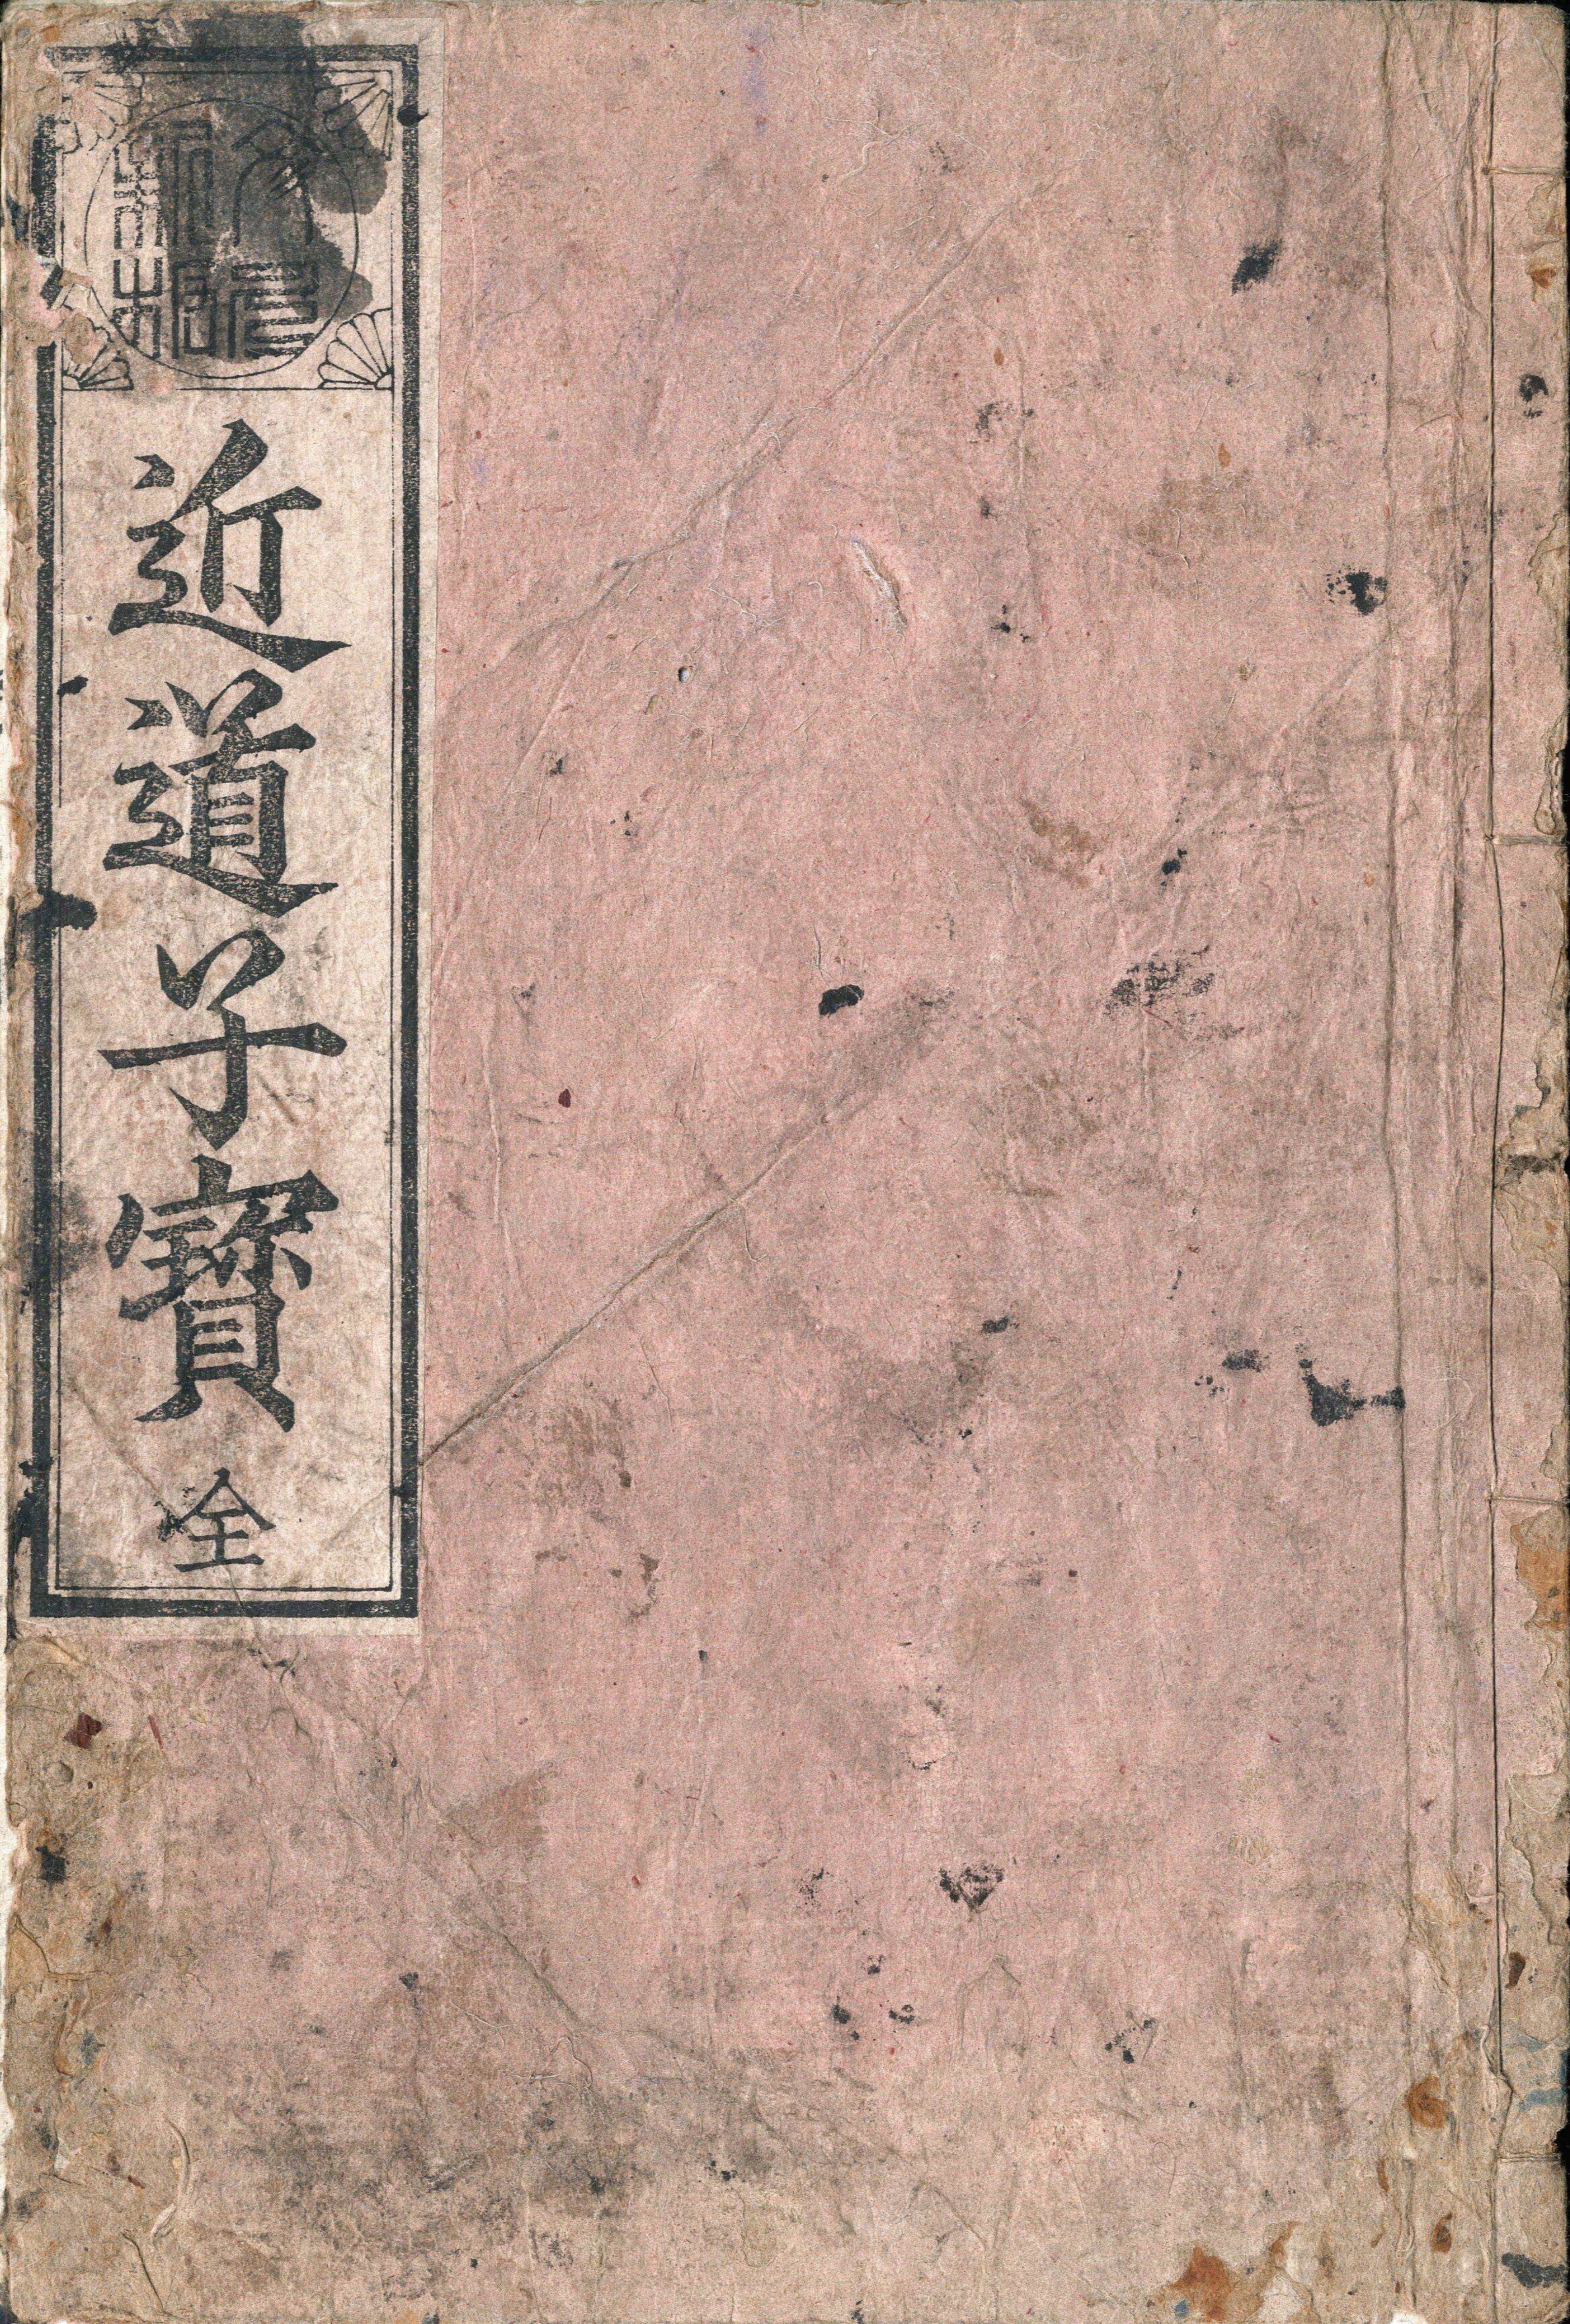 近道子寶
全